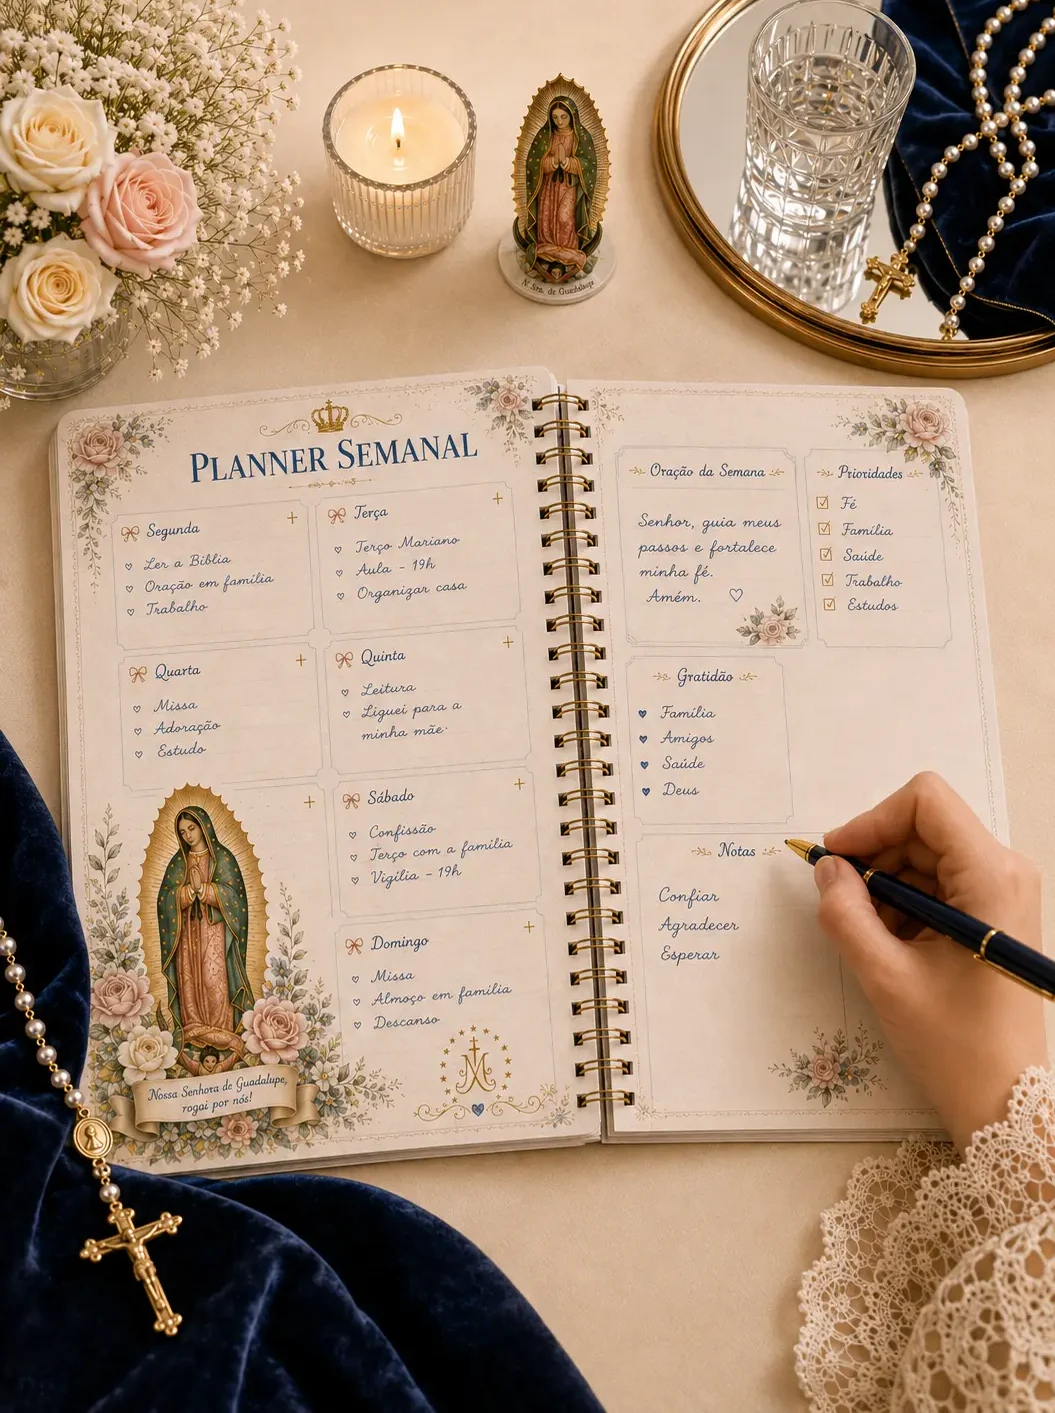 Nª Sra. de Guadalupe
PLANNER SEMANAL
Segunda
Ler a Bíblia
Oração em família
Trabalho
Terça
Terço Mariano
Aula - 19h
Organizar casa
Quarta
Missa
Adoração
Estudo
Quinta
Leitura
Liguei para a
minha mãe.
Sábado
Confissão
Terço com a família
Vigília - 19h
Domingo
Missa
Almoço em família
Descanso
Nossa Senhora de Guadalupe,
rogai por nós!
Oração da Semana
Senhor, guia meus
passos e fortalece
minha fé.
Amém.
Prioridades
Fé
Família
Saúde
Trabalho
Estudos
Gratidão
Família
Amigos
Saúde
Deus
Notas
Confiar
Agradecer
Esperar